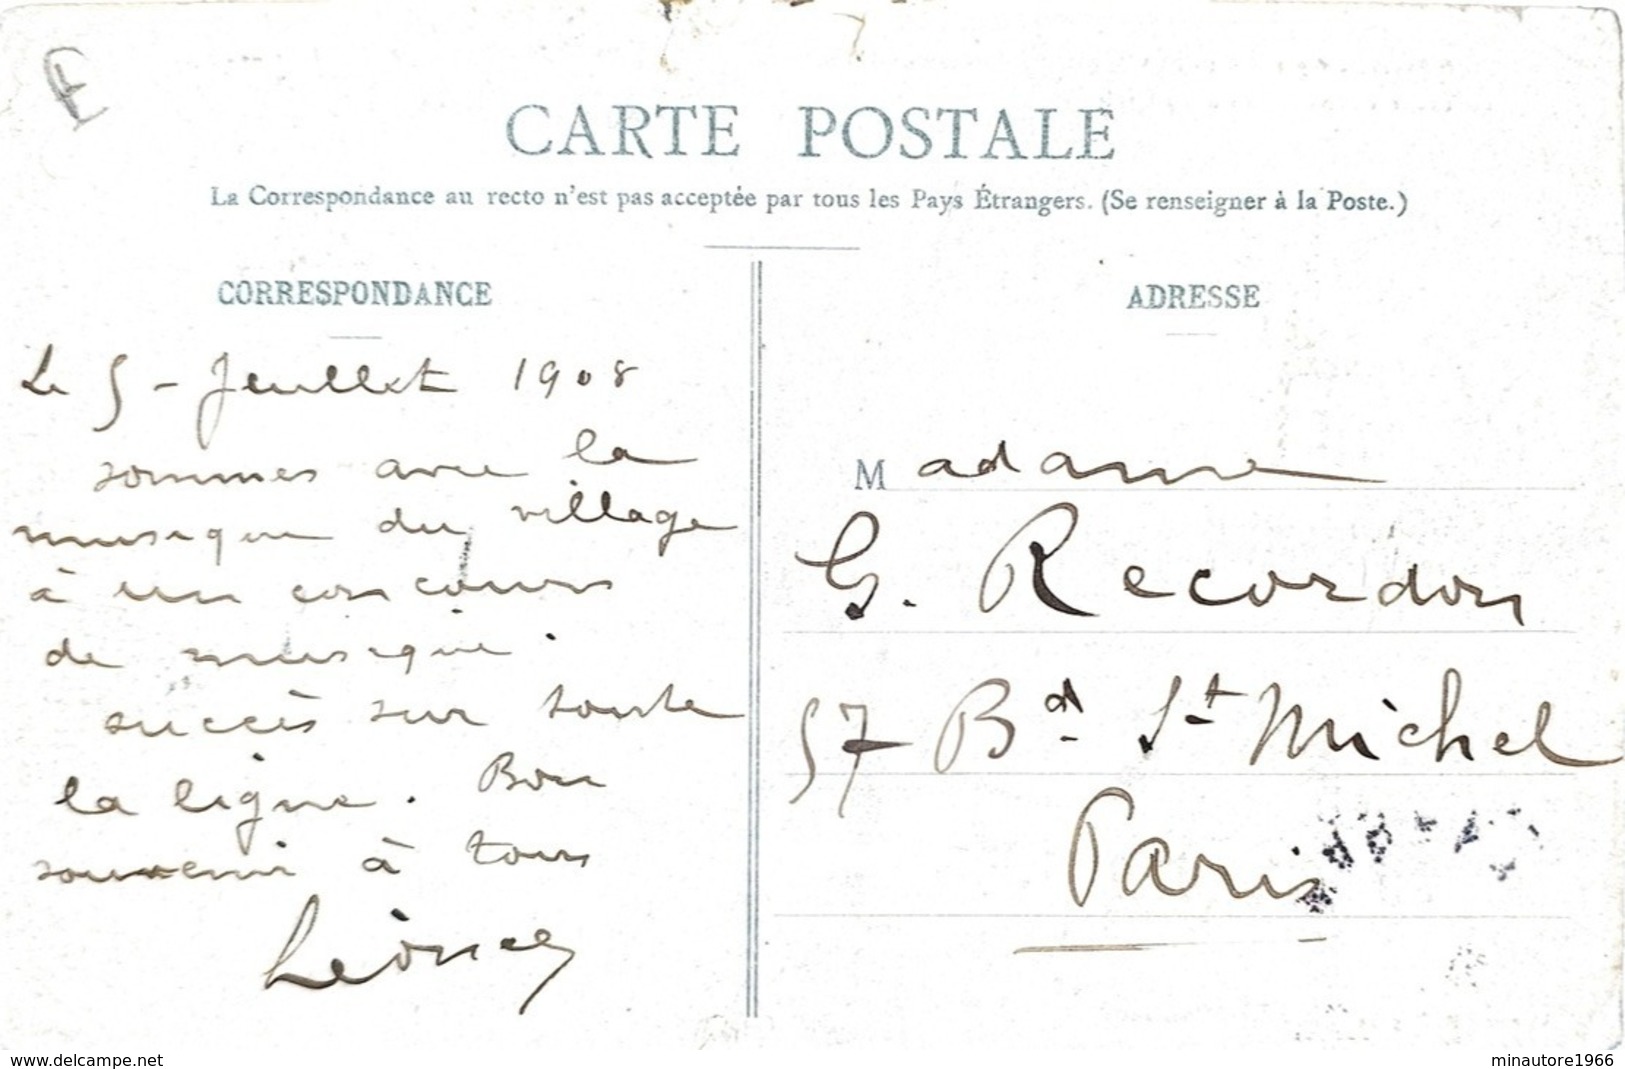 CARTE POSTALE
La Correspondance au recto n'est pas acceptée par tous les Pays Étrangers. (Se renseigner à la Poste.)
CORRESPONDANCE
Le 5 - Juillet 1908
sommes avec la
musique du village
à un concours
de musique.
succès sur toute
la ligne. Bon
souvenir à tous
Léonce
ADRESSE
Madame
G. Recordon
57 Bd. St Michel
Paris
www.delcampe.net
minautore1966